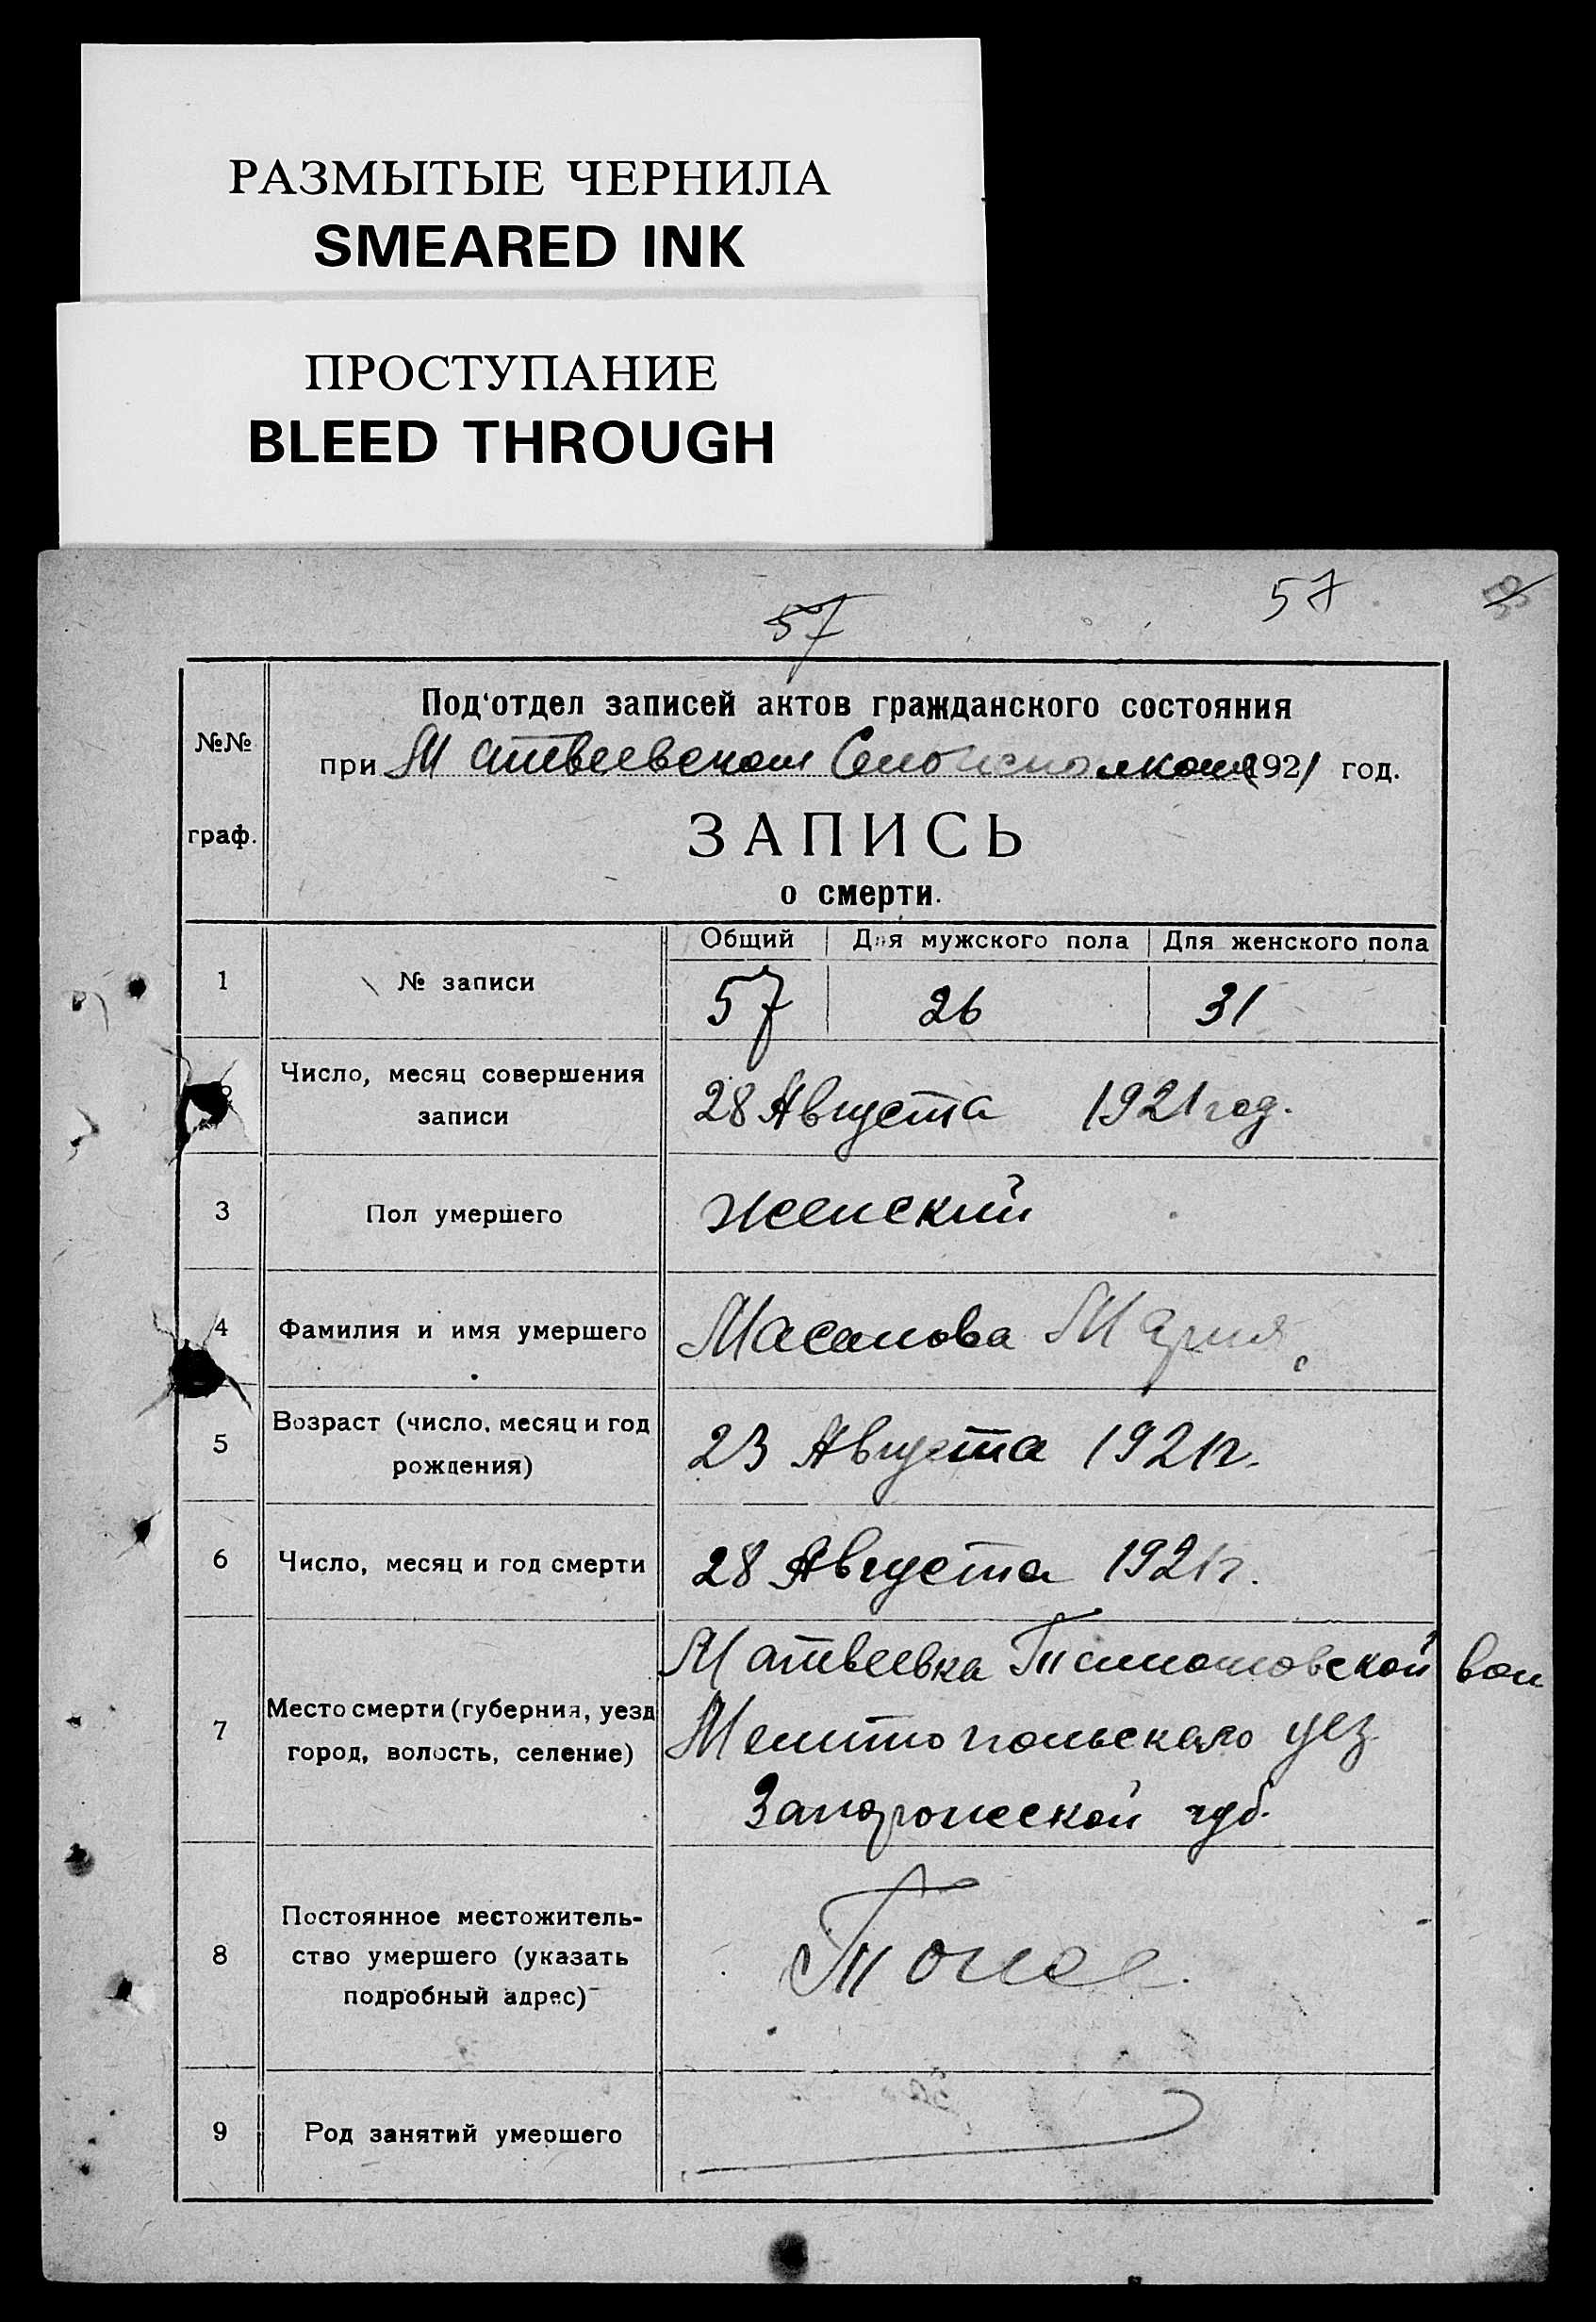 РАЗМЫТЫЕ ЧЕРНИЛА
SMEARED INK
ПРОСТУПАНИЕ
BLEED THROUGH
57
57
Под‘отдел записей актов гражданского состояния
№№ граф.
при Матвеевском Сельисполкоме 1921 год.
ЗАПИСЬ
о смерти.
Общий Для мужского пола Для женского пола
1 № записи 57 26 31
Число, месяц совершения
записи 28 Августа 1921 год.
3 Пол умершего женский
4 Фамилия и имя умершего Масалова Мария
5 Возраст (число, месяц и год
рождения) 23 Августа 1921 г.
6 Число, месяц и год смерти 28 Августа 1921 г.
Матвеевка Тимошовской вол
7 Место смерти (губерния, уезд
город, волость, селение) Мелитопольского уез
Запорожской губ.
8 Постоянное местожитель-
ство умершего (указать
подробный адрес) Тоже
9 Род занятий умершего